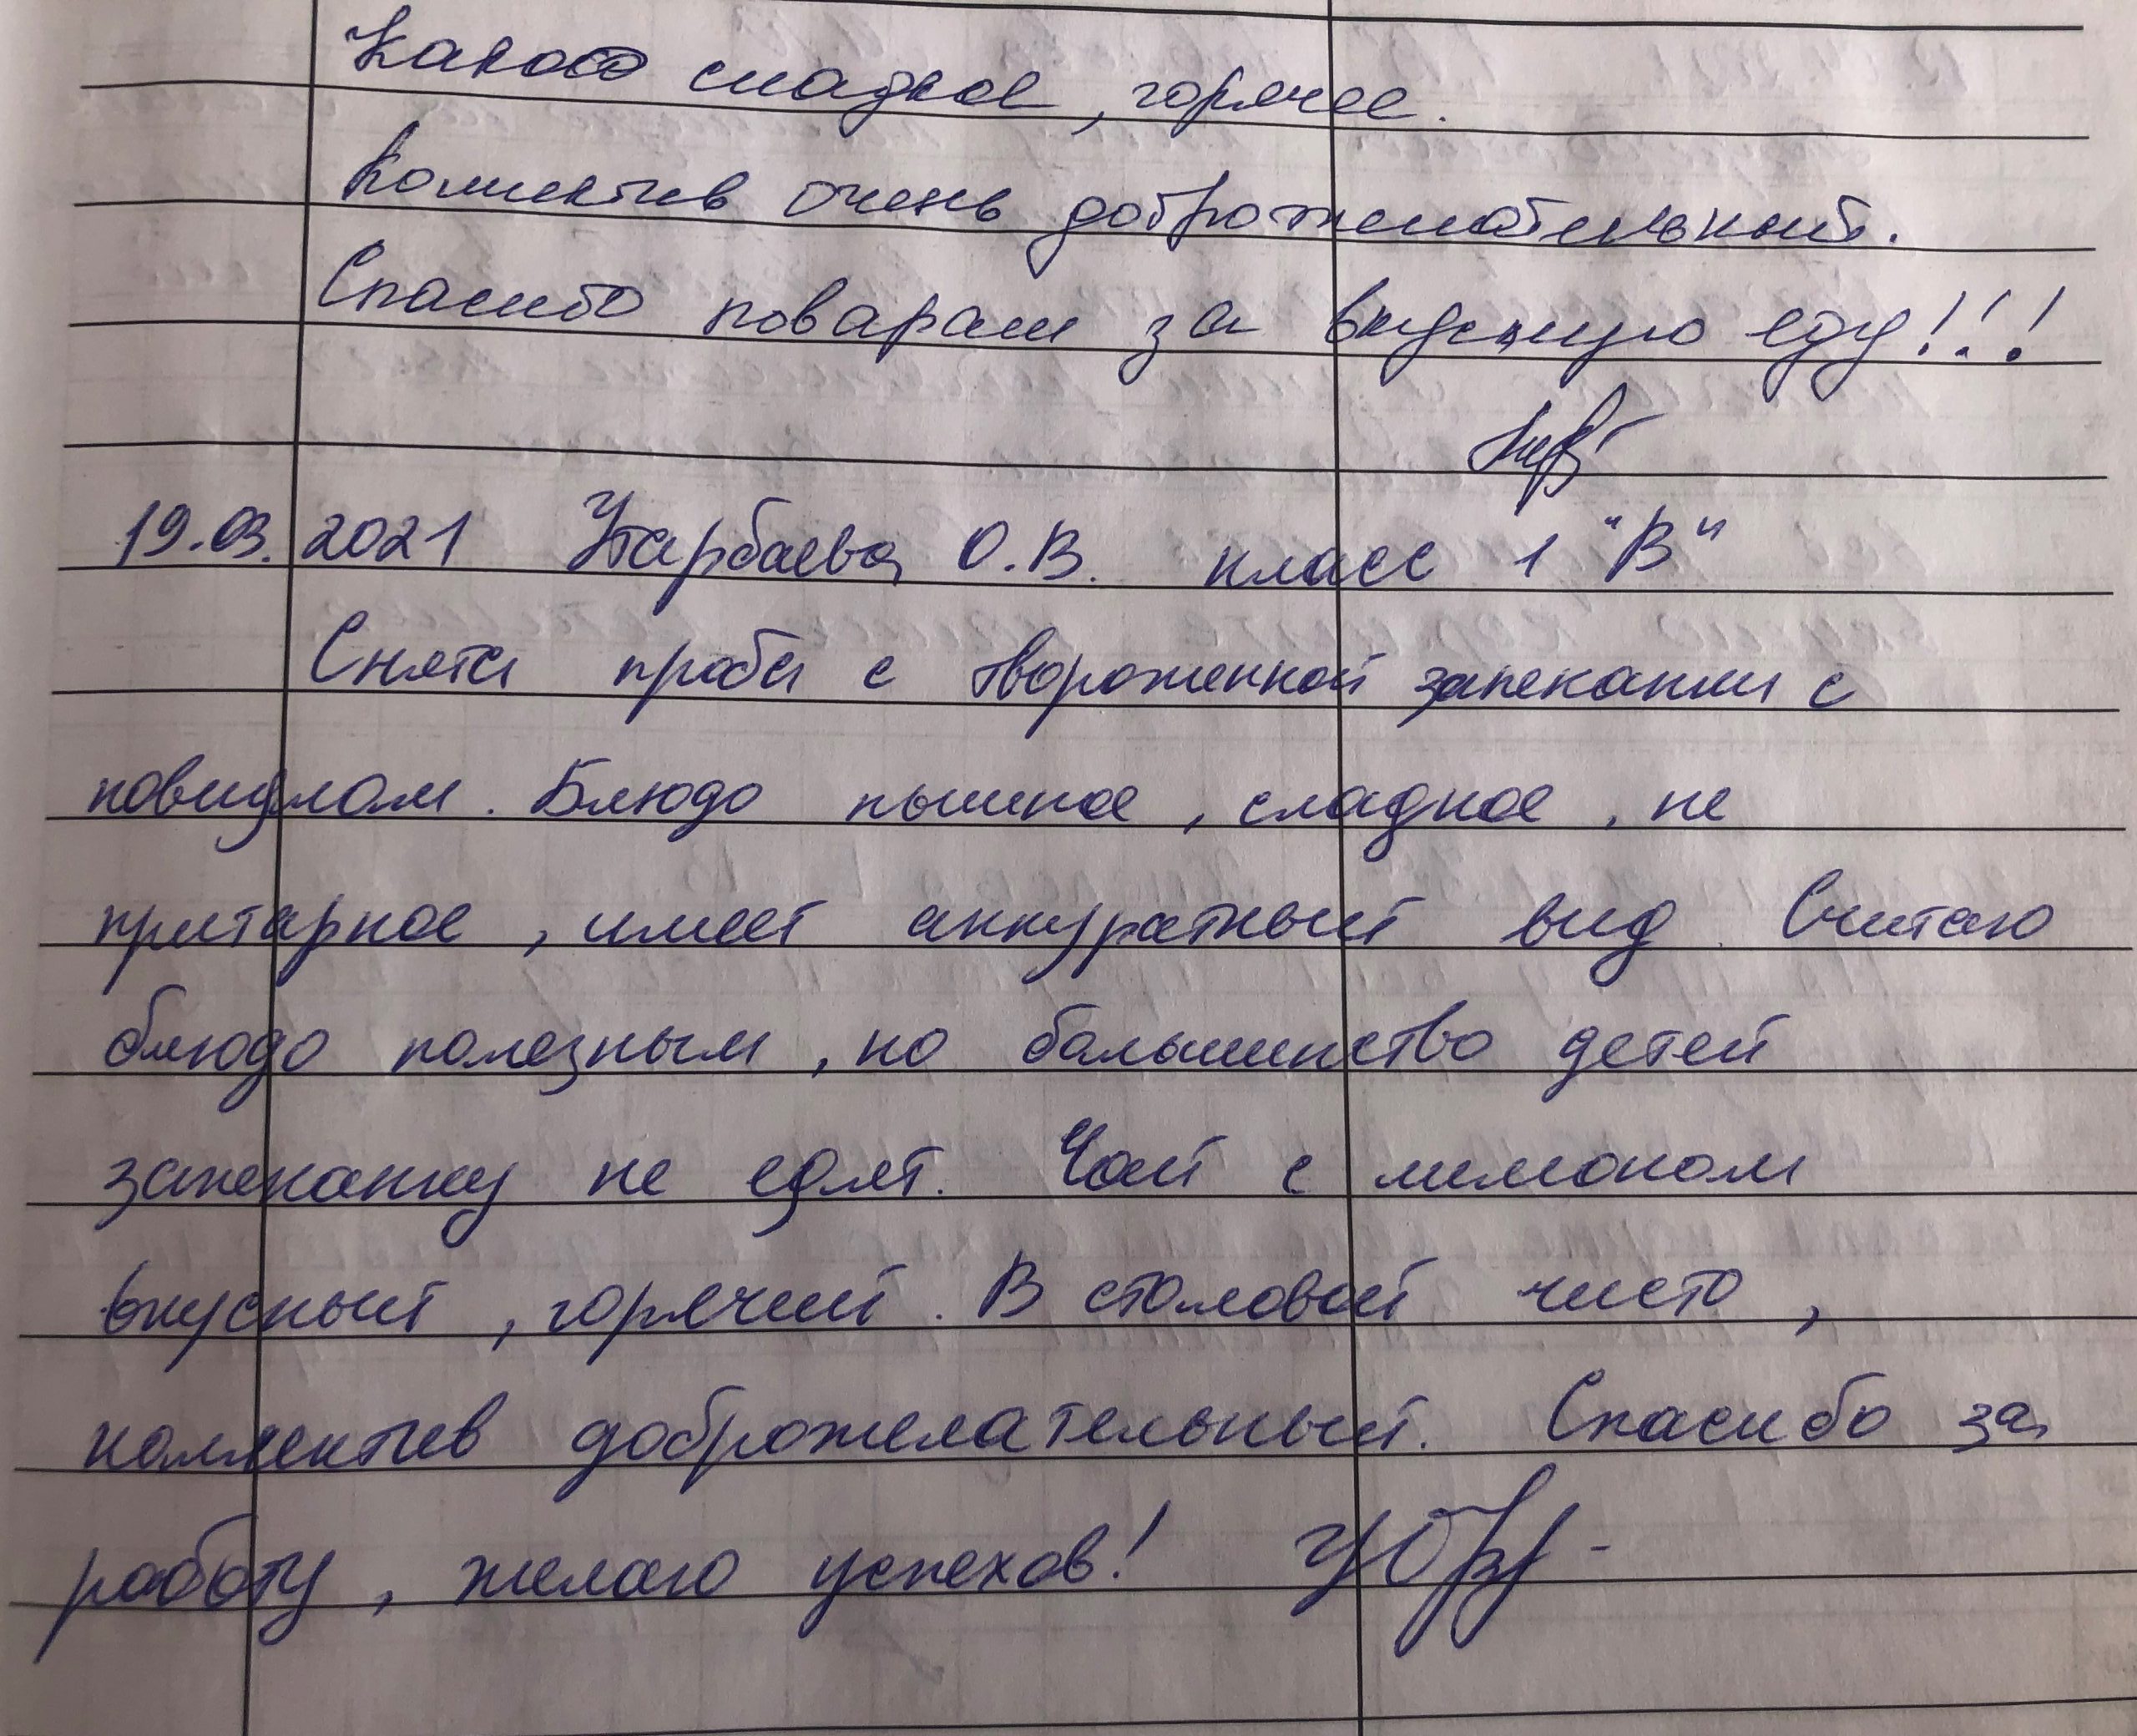 Какао сладкое, горячее.
Коллектив очень доброжелательный.
Спасибо поварам за вкусную еду!!!
19.03.2021 О.В. класс 1 "В"
Снята проба с твороженной запеканки с
повидлом. Блюдо пышное, сладкое, не
притарное, имеет аккуратный вид. Считаю
блюдо полезным, но большинство детей
запеканку не едят. Чай с лимоном
вкусный, горячий. В столовой чисто,
коллектив доброжелательный. Спасибо за
работу, желаю успехов!